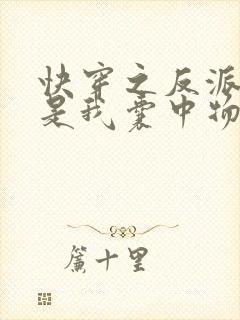 快穿之反派
是我囊中物
簾十里